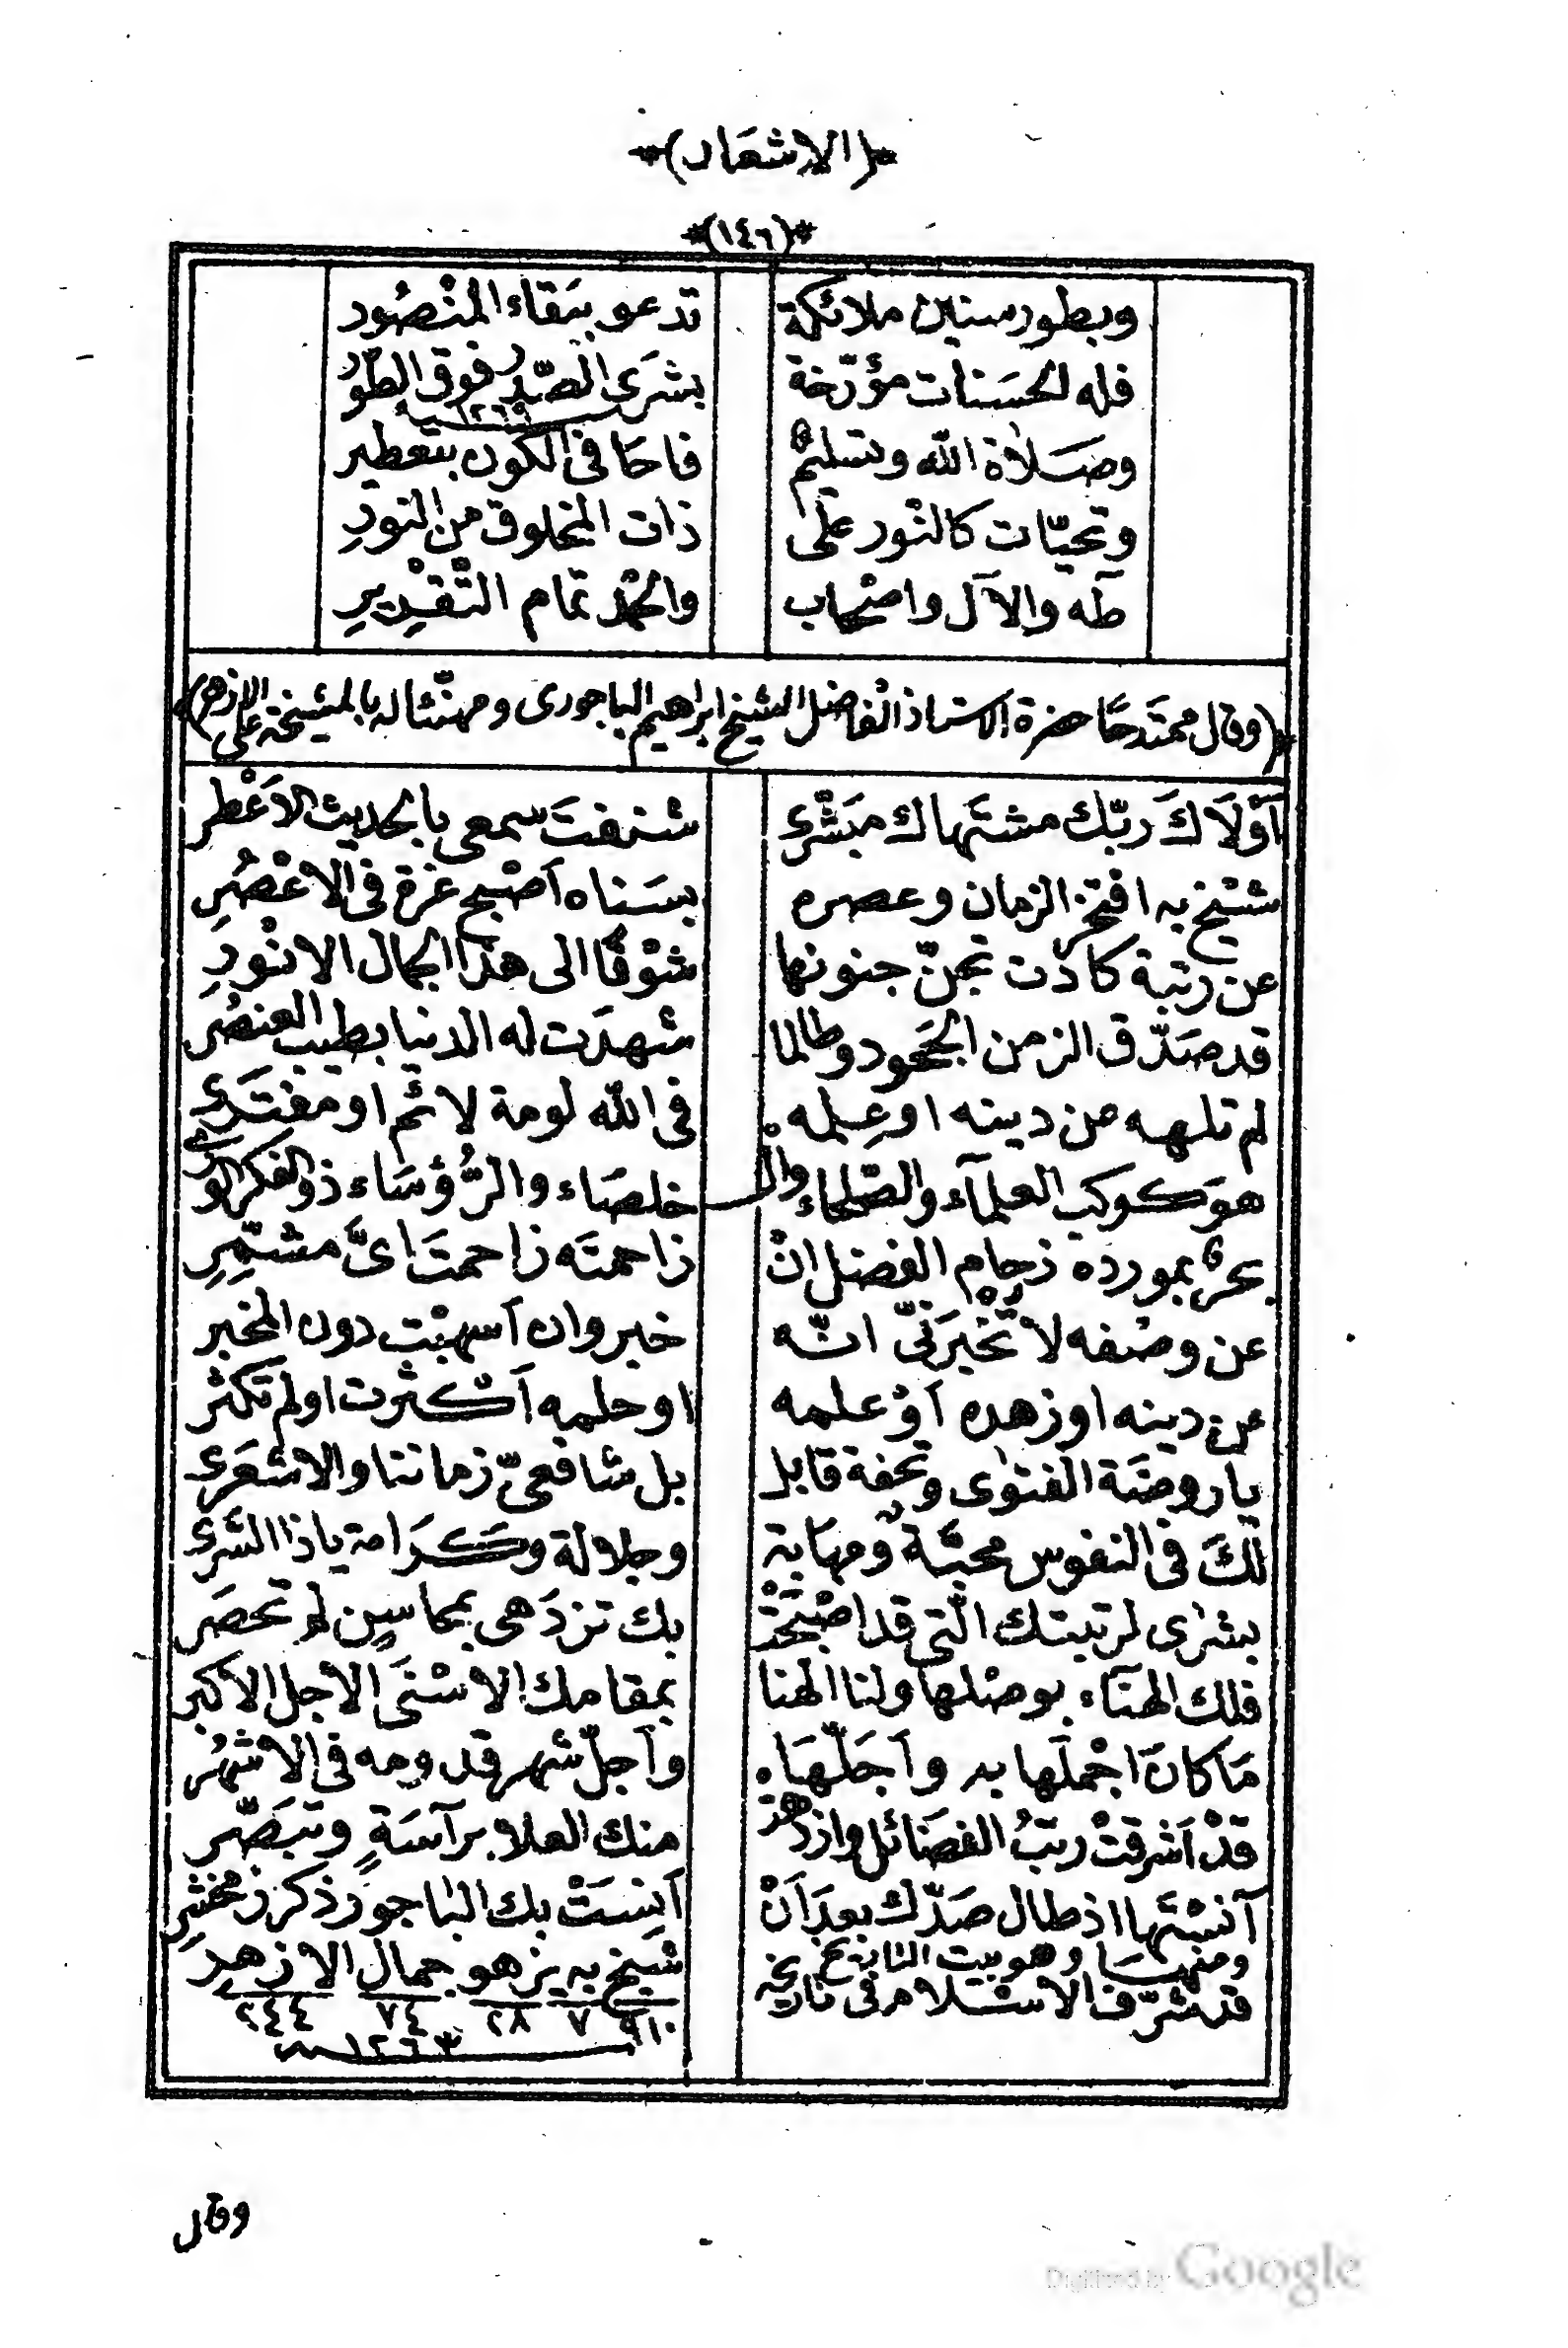 ﴿الاشعار﴾
(١٤٦)
وبطور سنين ملائكة تدعو ببَقاء المنْصُور
فله الحسَنات مؤرّخة بشرَى الصّدر فوق الطّور
١٢٦٩
وصَلاة الله وتسليمٌ فاحَا فى الكون بتعطير
وتحيّات كالنّور علٰى ذات المخلوق من النورِ
طٰه والآل واصْحاب والحمْد تمام التّقْدِيرِ
(وقال ممتدحًا حضرة الاستاذ الفاضل الشيخ ابراهيم الباجورى ومهنّئا له بالمشيخة على الازهر)
اَوْلَاكَ ربّك مشتَهاك مبَشّرِى شنفتَ سمعى بالحديث الاَعْطر
شيْخ به افتخر الزمان وعصره بسَناه اَصْبح غرة فى الاعْصُرِ
عن رتبة كادَت تجنّ جنونها شوْقًا الى هذا الجمال الانْورِ
قد صَدّق الزمن الجَحود وطالما شهدَت له الدنيا بطيب العنصُر
لم تلهه من دينه او عِلمه فى الله لومة لائم او مفتَرى
هوَ كوكب العلمآء والصّلحاء والْـ ـخلصَاء والرُّؤسَاء ذو الفكر الورى
بحرٌ بمورده زحام الفضل انْ زاحمتَه زاحمتَ اىَّ مشمِّرِ
عن وصْفه لا تخْبرَنّى انّه خبر وان اَسهبْت دون المخبر
عن دينه او زهده اَوْ علمه او حلمه اَكْثرت او لم تكثر
يا روضَة الفتوٰى وتحفة قابل بل شافعىّ زماننا والاشعَرى
لكَ فى النفوس محبّةٌ ومهَابة وجلالة وكرَامة يا ذا السَّرى
بشرٰى لرتبتك الّتى قد اصْبَحْت بك تزدَهى بمحاسِن لم تحصَر
فلك الهنَاء بوصْلها ولنا الهنا بمقامك الاسْنَى الاجل الاكبر
مَا كانَ اجْملَها به واَجَلّهَا واَجلّ شهر قدومه فى الاشهُر
قدْ اَشرقتْ رتبُ الفضَائل وازدهت منك العلا برآسَةٍ وتبَصّر
آنسْتَها اذ طال صَدّك بعدَ اَنْ اَنِسَتْ بك البٰاجور ذكر زمخشرِ
ومنها وهو بيت التاريخ
قد شرّف الاسْلام فى تاريخه شيْخ به يزهو جمال الازهرِ
٩١٠ ٧ ٢٨ ٧٤ ٢٤٤
١٢٦٣
وقال
Digitized by Google